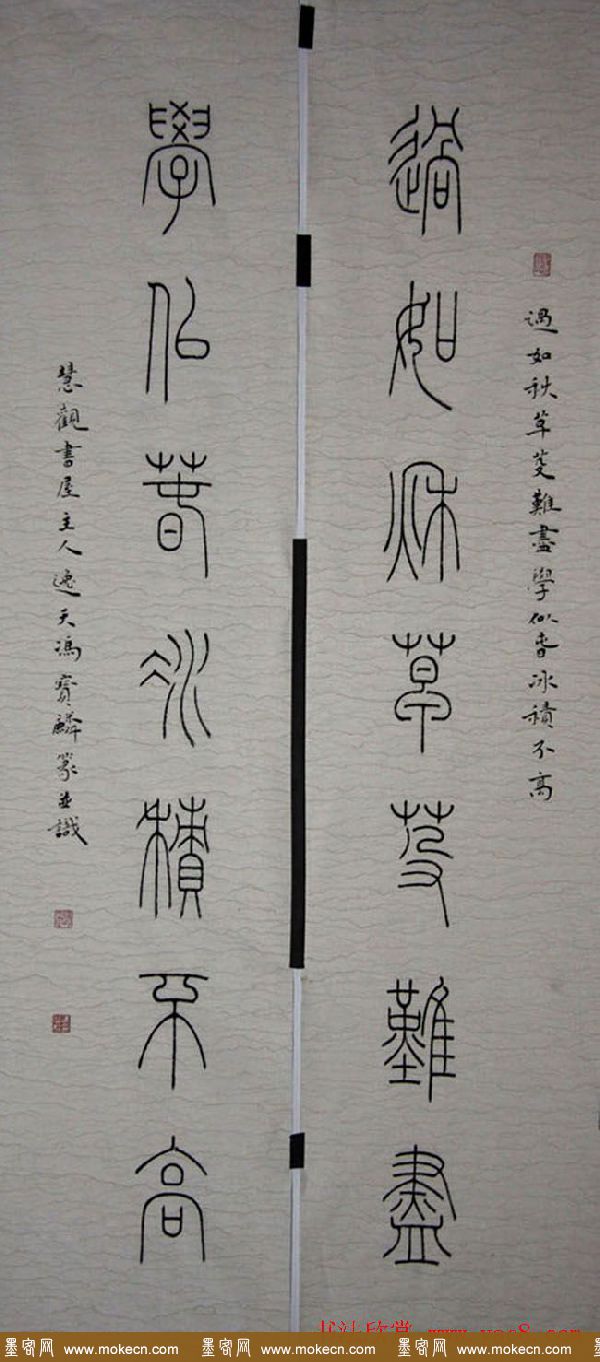 過如秋草芟難盡學似春冰積不高
過如秋草芟難盡
學似春冰積不高
慧觀書屋主人逸天馮寶麟篆並識
书法欣赏 www.yac8.com
墨客网 www.mokecn.com 墨客网 www.mokecn.com 墨客网 www.mokecn.com